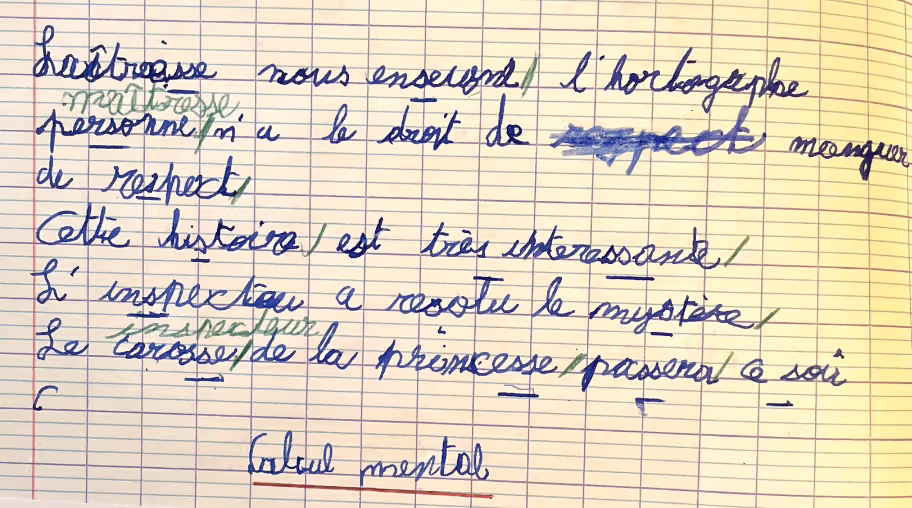 Laîtraisse nous enseiond/ l'hortographe
maîtresse
personne/n'a le droit de respect manquer
de respect/
Cette histoire/ est très interessante/
L'inspecteu a resolu le mystère/
inspecteur
Le carosse/de la princesse/passera/ ce soi
C
Calcul mental